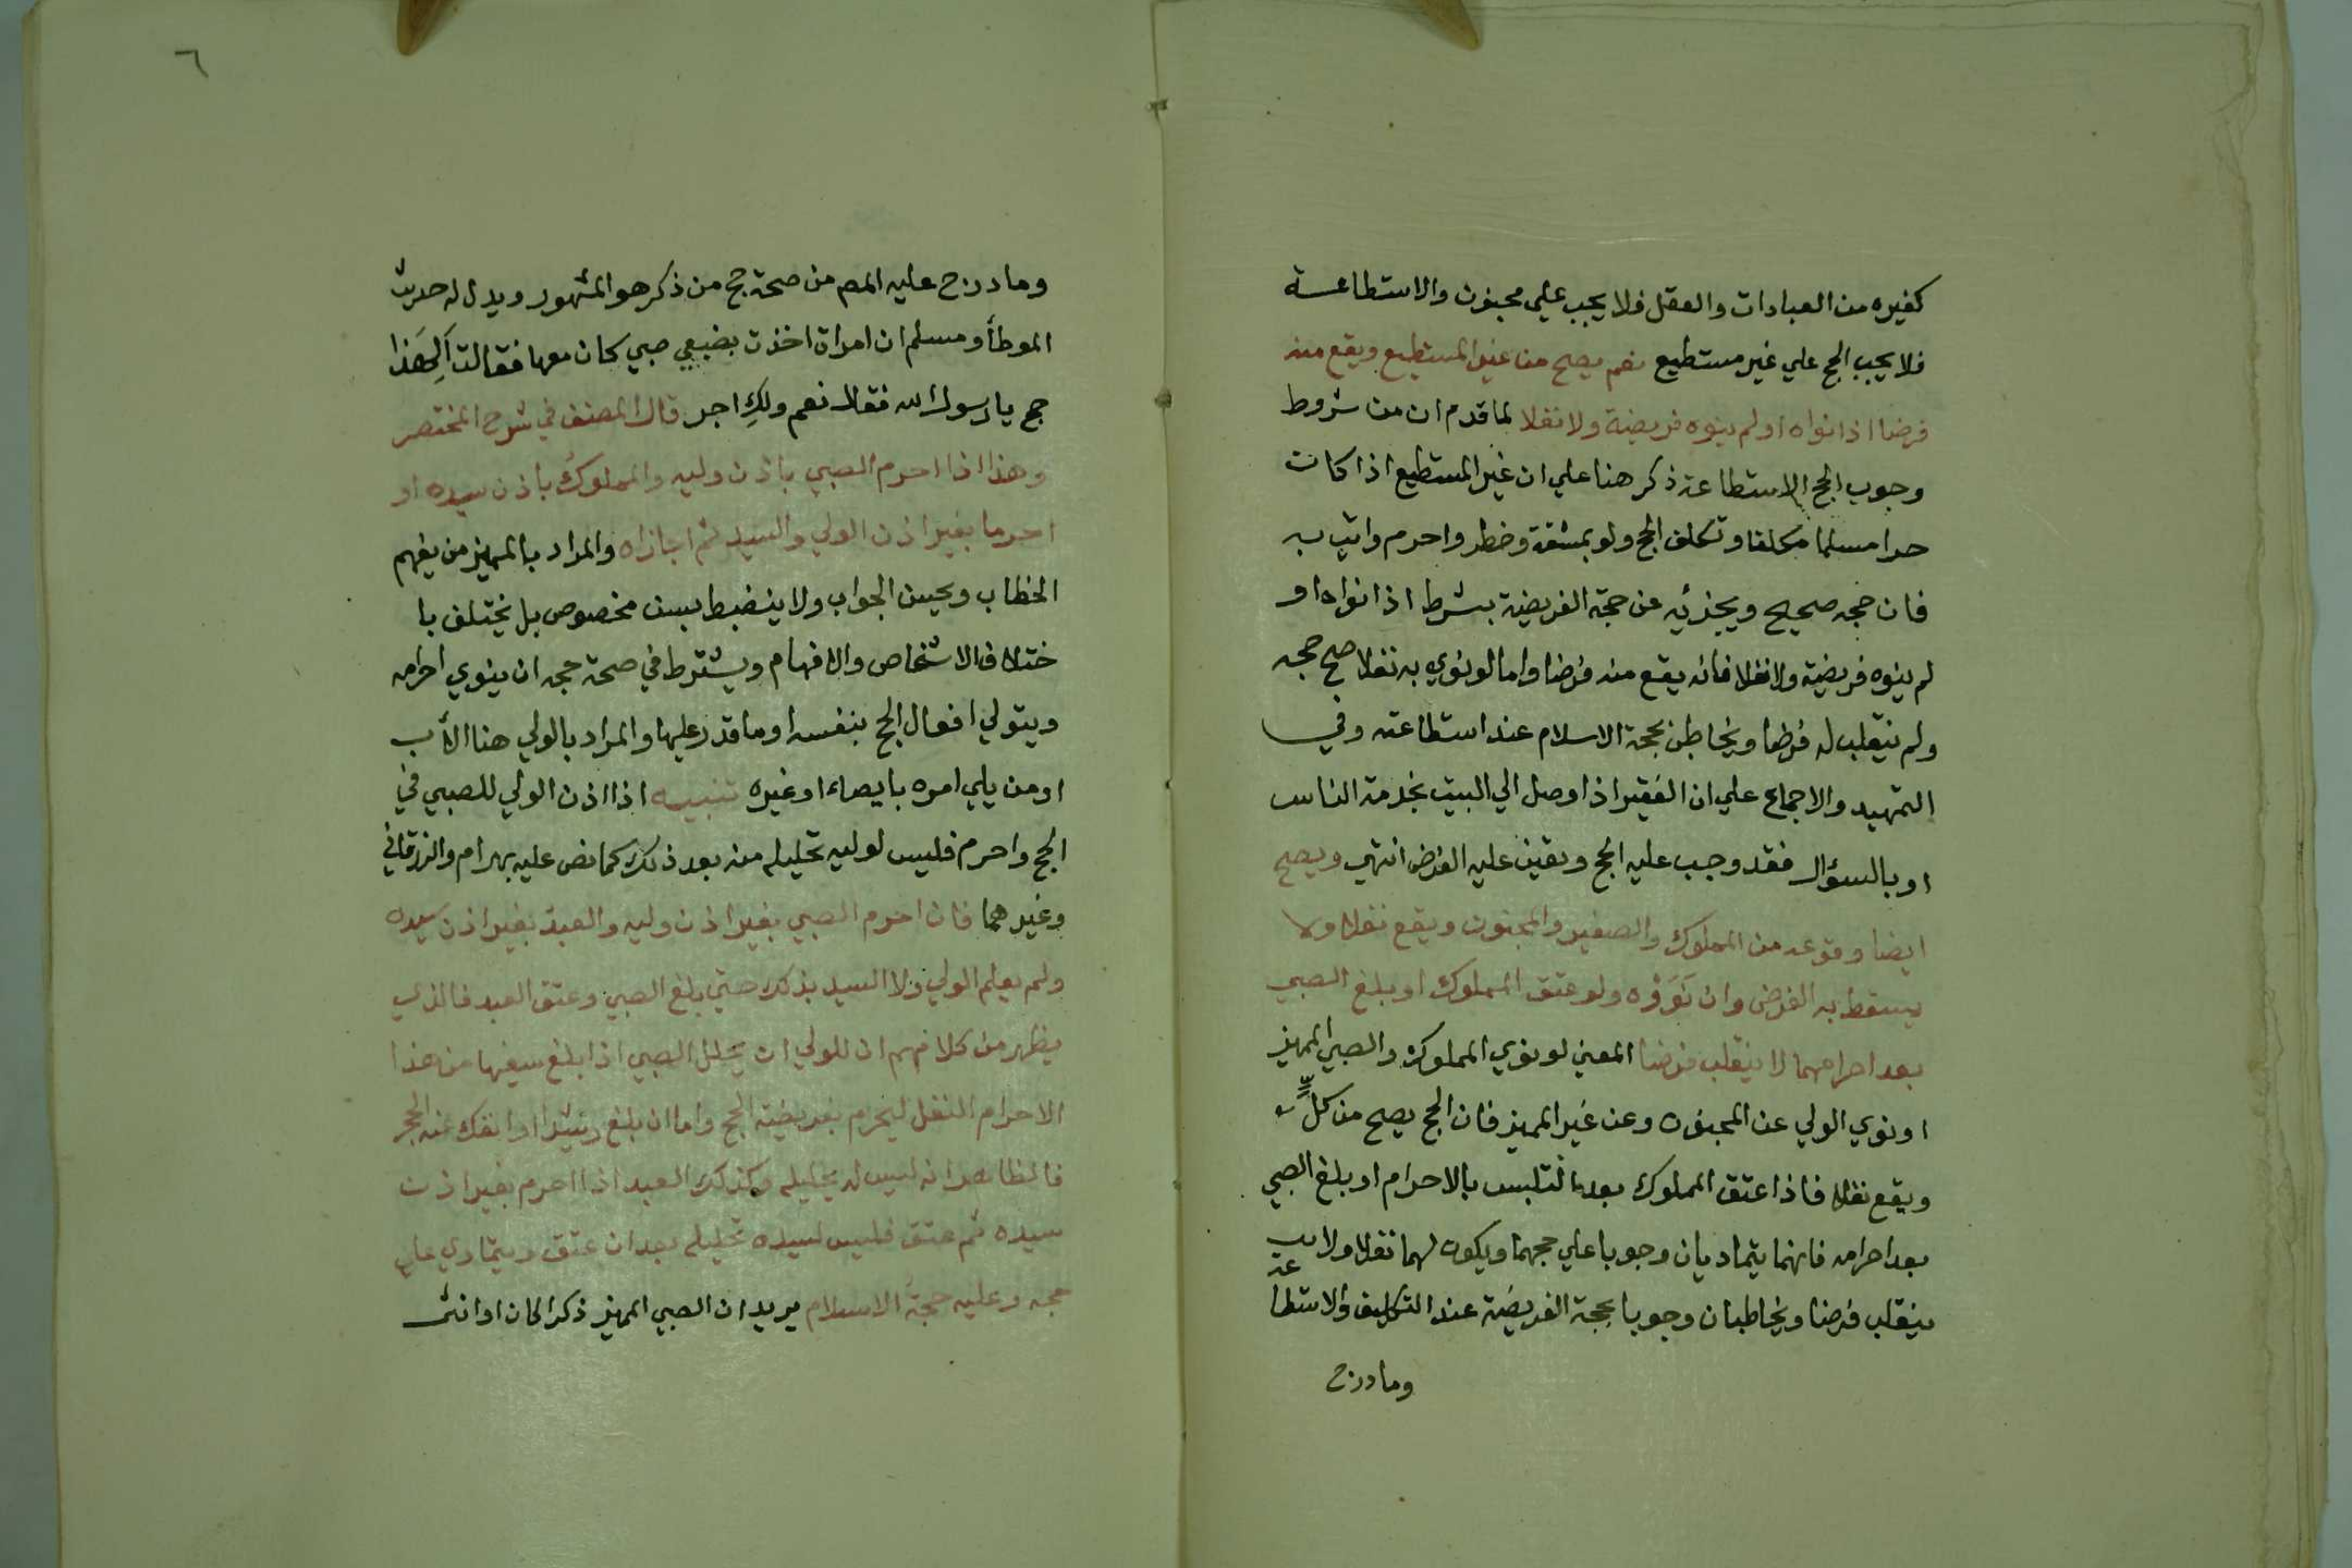 كغيره من العبادات والعقل فلا يجب علي مجنون والاستطاعة
فلا يجب الحج علي غير مستطيع نعم يصح من غير المستطيع ويقع منه
فرضا اذا نواه او لم ينوه فريضة ولا نفلا لما قدم ان من شروط
وجوب الحج الاستطاعة ذكر هنا علي ان غير المستطيع اذا كان
حرا مسلما مكلفا وتكلف الحج ولو بمشقة وخطر واحرم واتي به
فان حجه صحيح ويجزئيه عن حجة الفريضة بشرط اذا نواه او
لم ينوه فريضة ولا نفلا فانه يقع منه فرضا واما لو نوي به نفلا صح حجه
ولم ينقلب له فرضا ويخاطب بحجة الاسلام عند استطاعته وفي
التمهيد والاجماع علي ان الفقير اذا وصل الي البيت بخدمة الناس
او بالسؤال فقد وجب عليه الحج وتعين عليه الفرض انتهي ويصح
ايضا وقوعه من المملوك والصغير والمجنون ويقع نفلا ولا
يسقط به الفرض وان نَوَوْه ولو عتق المملوك او بلغ الصبي
بعد احرامهما لا ينقلب فرضا المعني لو نوي المملوك والصبي المميز
او نوي الولي عن المجنون وعن غير المميز فان الحج يصح من كلٍّ
ويقع نفلا فاذا عتق المملوك بعد التلبس بالاحرام او بلغ الصبي
بعد احرامه فانهما يتماديان وجوبا علي حجهما ويكون لهما نفلا ولا
ينقلب فرضا ويخاطبان وجوبا بحجة الفريضة عند التكليف والاستطا
عة
وما درج
٦
وما درج عليه المص من صحة حج من ذكر هو المشهور ويدل له حديث
الموطأ ومسلم ان امراة اخذت بضبعي صبي كان معها فقالت اَلِهَذا
حج يا رسول الله فقال نعم ولكِ اجر قال المصنف في شرح المختصر
وهذا اذا احرم الصبي باذن وليه والمملوك باذن سيده او
احرما بغير اذن الولي والسيد ثم اجازاه والمراد بالمميز من يفهم
الخطاب ويحسن الجواب ولا ينضبط بسن مخصوص بل يختلف با
ختلاف الاشخاص والافهام ويشترط في صحة حجه ان ينوي احرامه
ويتولي افعال الحج بنفسه او ما قدر عليها والمراد بالولي هنا الأب
او من يلي امره بايصاء او غيره تنبيه اذا اذن الولي للصبي في
الحج واحرم فليس لوليه تحليله منه بعد ذلك كما نص عليه بهرام والزرقاني
وغيرهما فان احرم الصبي بغير اذن وليه والعبد بغير اذن سيده
ولم يعلم الولي ولا السيد بذلك حتي بلغ الصبي وعتق العبد فالذي
يظهر من كلامهم ان للولي ان يحلل الصبي اذا بلغ سفيها من هذا
الاحرام النفل ليحرم بفريضة الحج واما ان بلغ رشيدا وانفك عنه الحجر
فالظاهر انه ليس له تحليله وكذلك العبد اذا احرم بغير اذن
سيده ثم عتق فليس لسيده تحليله بعد ان عتق ويتمادي علي
حجه وعليه حجة الاسلام يريد ان الصبي المميز ذكرا كان او انثي